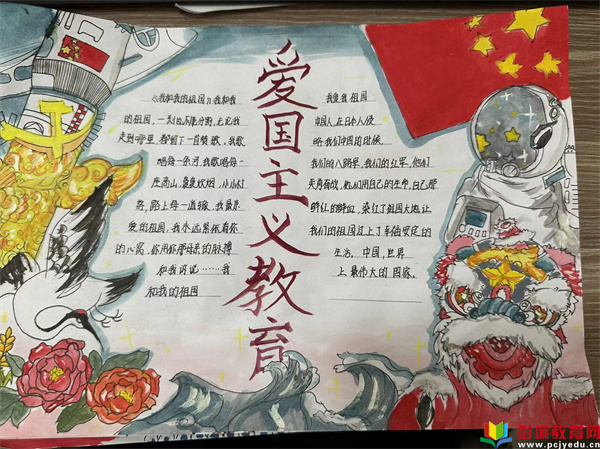 爱国主义教育
《我和我的祖国》我和我
的祖国，一刻也不能分割，无论我
走到哪里，都唱下一首赞歌，我歌
唱每一条河，我歌唱每一
座高山，袅袅炊烟，小小村
落，路上每一道辙，我最亲
爱的祖国，我永远紧依着你
的心窝，你用你那母亲的脉搏
和我诉说……我
和我的祖国
我爱我祖国
中国人，在日本人侵
略我们中国的时候
我们的八路军，我们的红军，他们
英勇奋战，他们用自己的生命，自己那
鲜红的鲜血，染红了祖国大地，让
我们的祖国过上了幸福安定的
生活，中国，世界
上最伟大的国家。
教育网
www.pcjyedu.cn